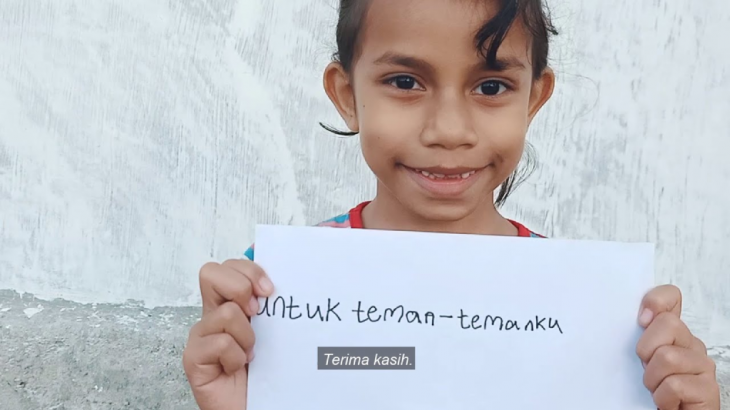 untuk teman-temanku
Terima kasih.